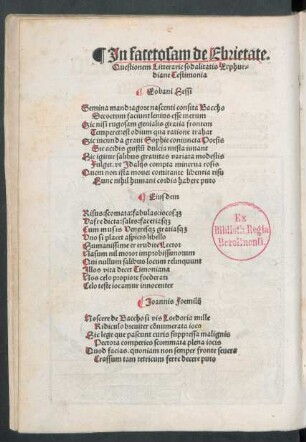 ¶ In facetosam de Ebrietate.
Questionem Litterarie sodalitatis Erphur-
diane Testimonia
¶ Eobani Hessi
Semina mandragore nascenti consita Baccho
Decoctum faciunt lenius esse merum
Sic nisi rugosam genialis gracia frontem
Temperet est odium qua ratione trahat
Sic iucunda graui Sophie coniuncta Poesis
Sic acidis griffis dulcia mixta iuuant
Sic igitur salibus grauitas variata modestis
Fulget, vt Idalijs compta minerua rosis
Quem non ista mouet comitante licentia risu
Hunc nihil humani cordis habere puto
¶ Eiusdem
Risus: scomata: fabulas iocosq3
Vafre dicta: sales: facetiasq3
Cum musis Veneresq3 gratiasq3
Uno si placet aspicis libello
Humanissime et erudite Lector
Nasum nil moror improbissimorum
Qui nullum salibus locum relinquunt
Illos vita decet Timoniana
Nos celo propiore foederati
Celo teste iocamur innocenter
¶ Joannis Foemilij
Noscere de Baccho si vis
Ridiculo breuiter enumerata ioco
Sic lege que pascunt curis suppressa malignis
Pectora comperies scommata plena iocis
Quod facias. quoniam non semper fronte seuera
Crassum tam tetricum ferre decere puto
Ex
Biblioth. Regia
Berolinensi.